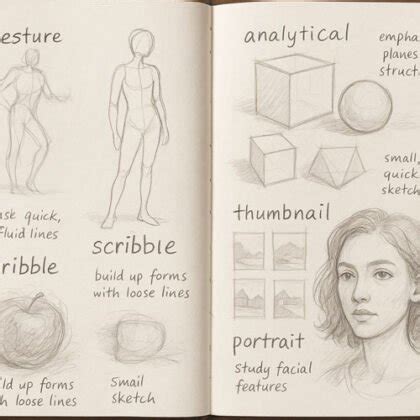 esture
ask quick,
fluid lines
scribble
build up forms
with loose lines
ribble
ld up forms
h loose lines
Smail
sketch
analytical
emphas
planes
structu
small,
quick
sketch
thumbnail
portrait
study facial
features